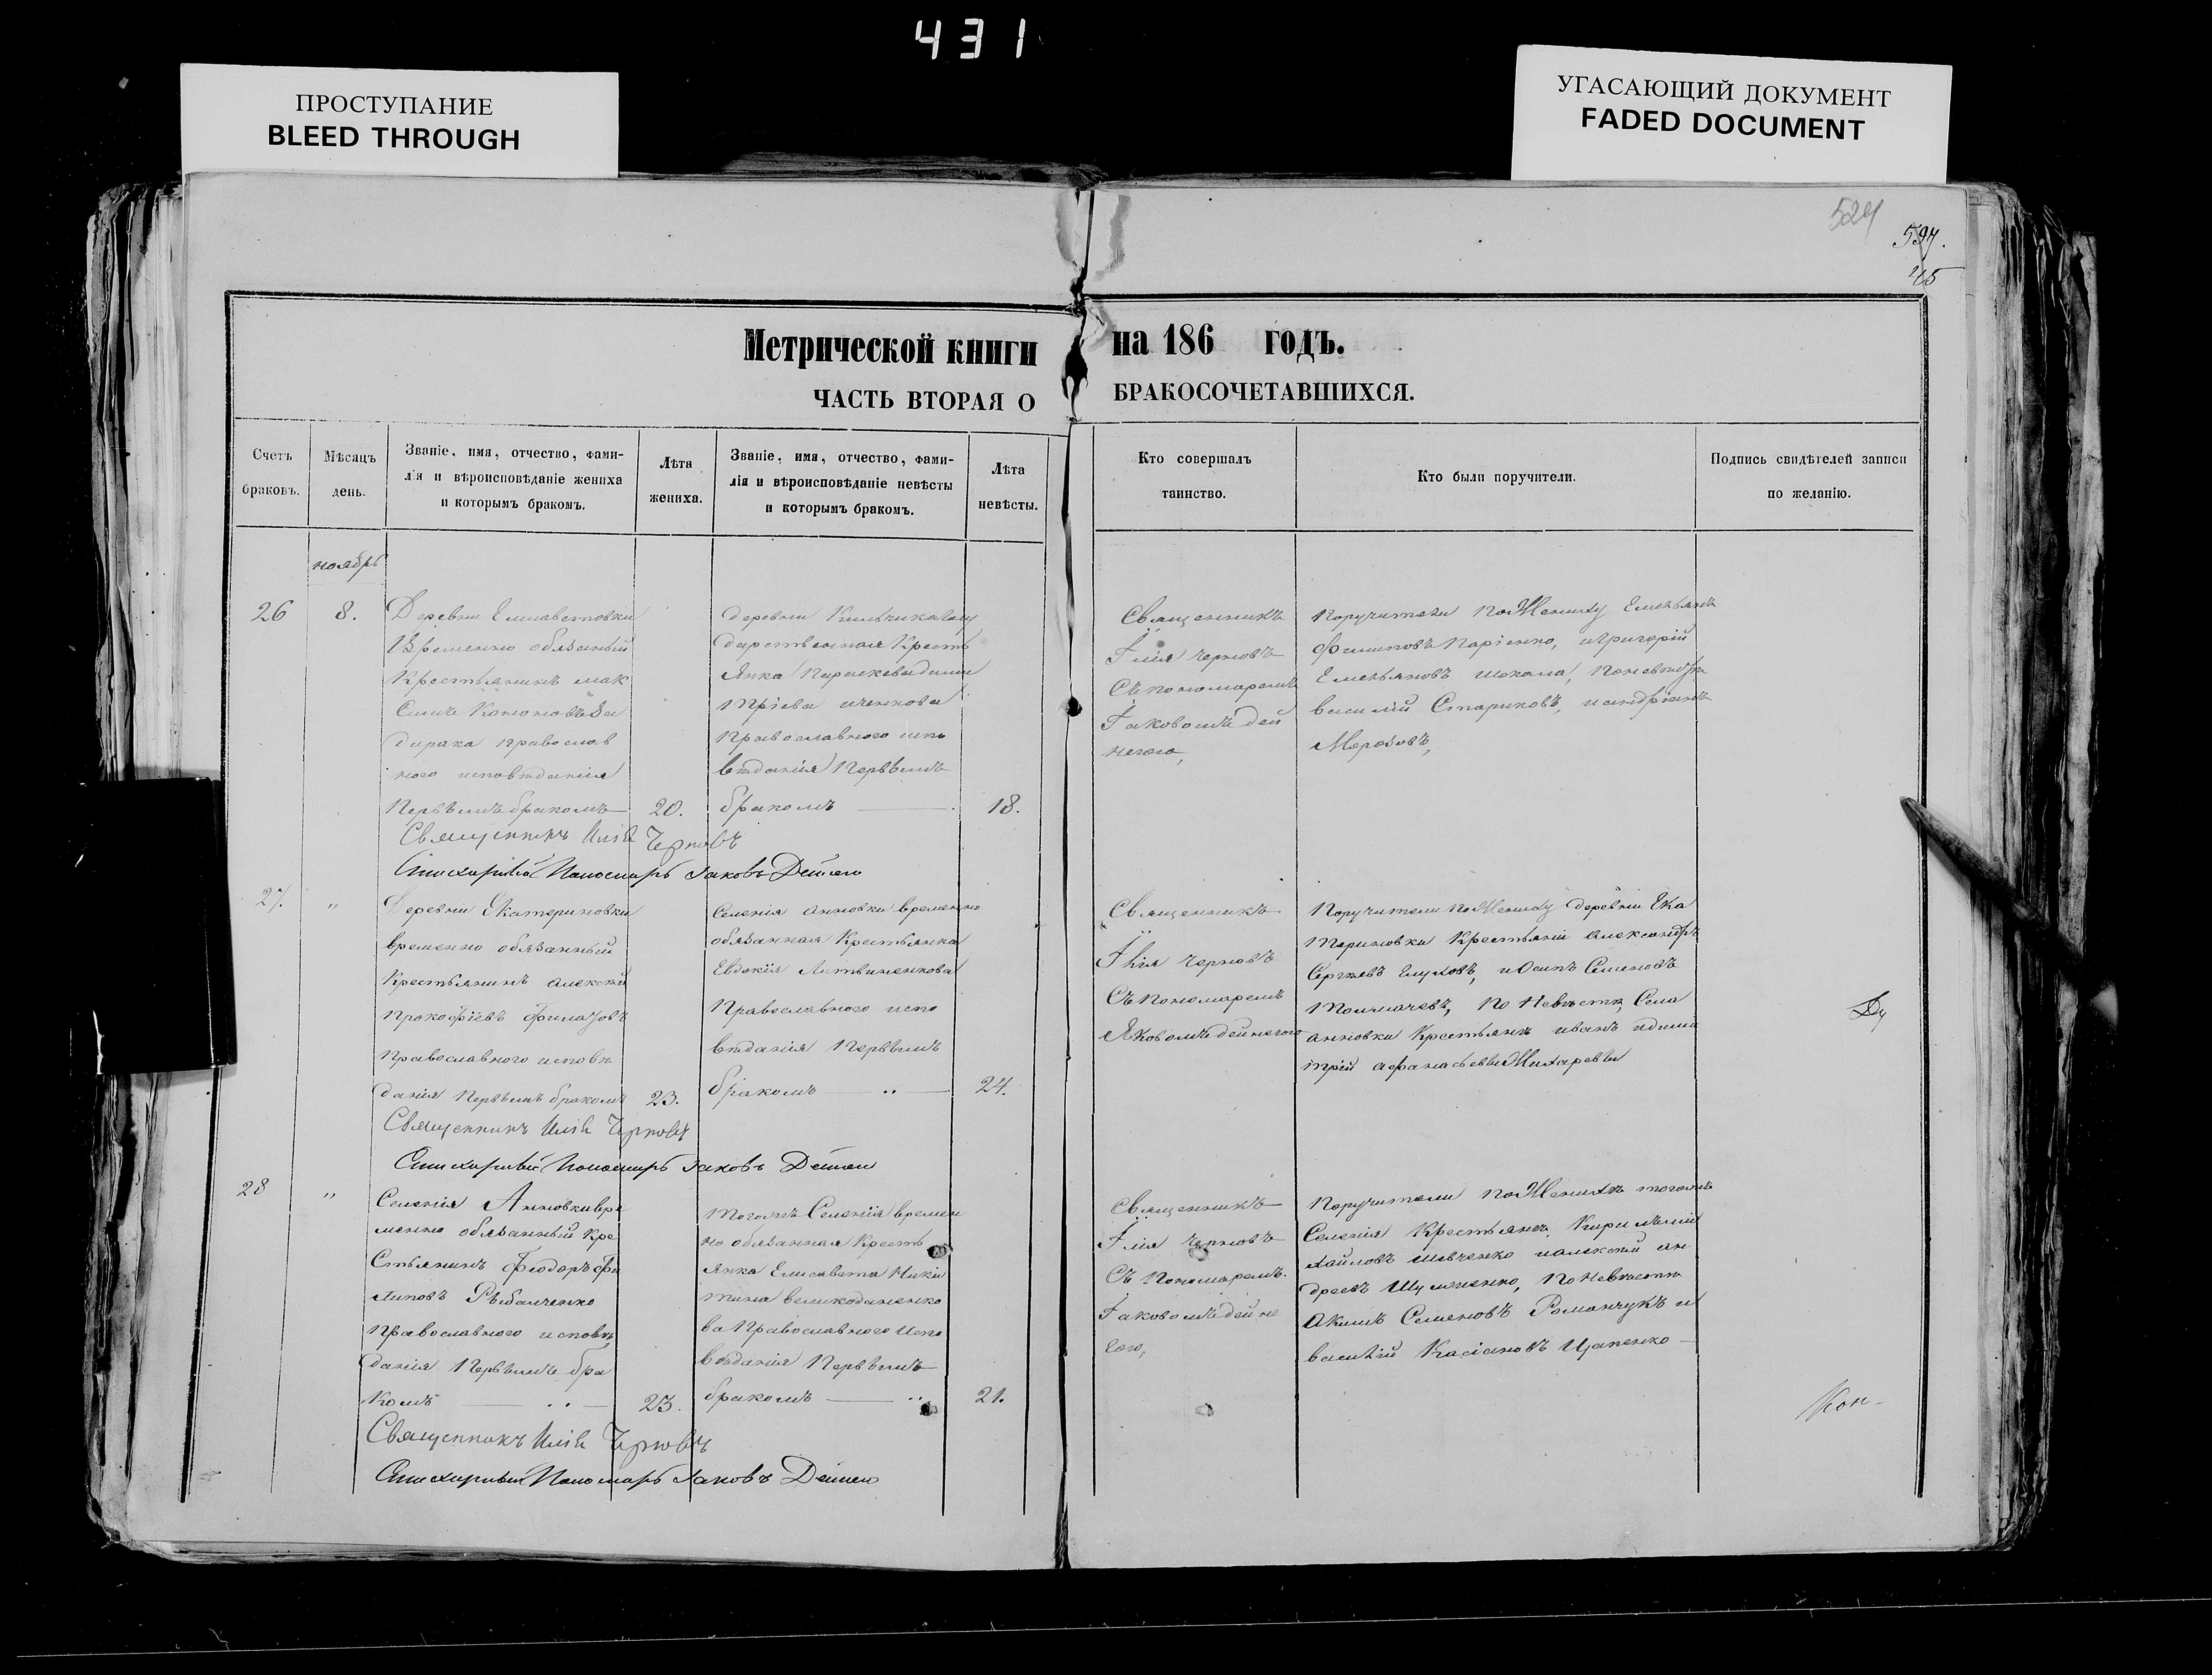 431
ПРОСТУПАНИЕ
BLEED THROUGH
УГАСАЮЩИЙ ДОКУМЕНТ
FADED DOCUMENT
524
597.
45
Метрической книги на 186 годъ.
ЧАСТЬ ВТОРАЯ О БРАКОСОЧЕТАВШИХСЯ.
Счетъ
браковъ.
Мѣсяцъ
день.
Званіе, имя, отчество, фами-
лія и вѣроисповѣданіе жениха
и которымъ бракомъ.
Лѣта
жениха.
Званіе, имя, отчество, фами-
лія и вѣроисповѣданіе невѣсты
и которымъ бракомъ.
Лѣта
невѣсты.
Кто совершалъ
таинство.
Кто были поручители.
Подпись свидѣтелей записи
по желанію.
ноябрь
26
8.
Деревни Елисаветовки
Временно обязаный
Крестьянинъ мак
дарака православ
ного исповѣданія
Первымъ бракомъ
20.
деревни
дарственная Кресть
Янка Параскева дими
тріева
Православного испо
вѣданія Первымъ
бракомъ
18.
Священникъ
Ілія Черновъ
Съ пономаремъ
Іаковомъ дей
негою,
Поручители по Жениху Емельянъ
Филиповъ, и Григорій
Емельяновъ шокала, по невѣстѣ
василій Стариковъ, и андріянъ
Морозовъ,
Священникъ Илія Черновъ
Стихарный Пономарь Іаковъ
27.
"
Деревни Екатериновки
временно обязанный
Крестьянинъ алексѣй
Прокофіевъ
Православного исповѣ
данія Первымъ бракомъ
23.
Селенія анновки временно
обязанная Крестьянка
Евдокія Литвиненкова
Православного испо
вѣданія Первымъ
бракомъ
24.
Священникъ
Ілія Черновъ
Съ Пономаремъ
Яковомъ дейнегою
Поручители по Жениху деревни Ека
териновки Крестьяни александръ
Сергѣевъ, и Осипъ Семеновъ
Толмачевъ, по Невѣстѣ, Села
анновки Крестьяне иванъ и дими
трій афанасьевы
Священникъ Илія Черновъ
Стихарный Пономарь Іаковъ
28
"
Селенія Анновки вре
менно обязанный Кре
стьянинъ Феодоръ Фи
липовъ Рыбалченко
православного исповѣ
данія Первымъ бра
комъ
23.
тогожъ Селенія времен
но обязанная Кресть
янка Елисавета Ники
тина великоданенко
ва Православного Испо
вѣданія Первымъ
бракомъ
21.
Священникъ
Ілія Черновъ
Съ Пономаремъ.
Іаковомъ дейне
гою,
Поручители по Женихѣ тогожъ
Селенія Крестьяне, Кирилъ ми
хайловъ шевченко и алексѣй ан
дреевъ, по Невѣстѣ
Акимъ Семеновъ Романчукъ и
василій Касіановъ Цапенко
Священникъ Илія Черновъ
Стихарный Пономарь Іаковъ